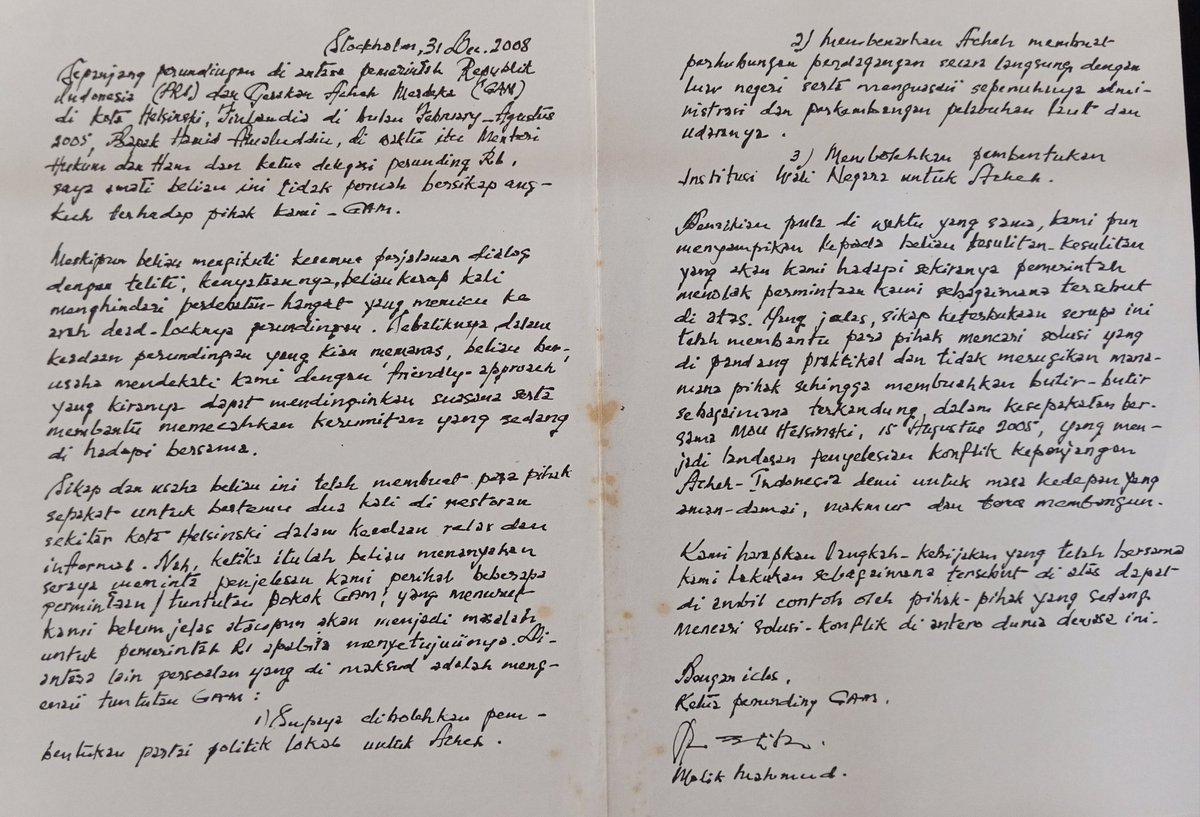 Stockholm, 31 Dec. 2008
Sepanjang perundingan di antara pemerintah Republik
Indonesia (PRI) dan Gerakan Acheh Merdeka (GAM)
di kota Helsinki, Finlandia di bulan February-Agustus
2005, Bapak Hamid Awaluddin, di waktu itu Menteri
Hukum dan Ham dan ketua delegasi perunding RI,
saya amati beliau ini tidak pernah bersikap ang-
kuh terhadap pihak kami - GAM.
Meskipun beliau mengikuti kesemua perjalanan dialog
dengan teliti, kenyataannya, beliau kerap kali
menghindari perdebatan-hangat yang memicu ke
arah dead-locknya perundingan. Sebaliknya, dalam
keadaan perundingan yang kian memanas, beliau ber-
usaha mendekati kami dengan 'friendly-approach'
yang kiranya dapat mendinginkan suasana serta
membantu memecahkan kerumitan yang sedang
di hadapi bersama.
Sikap dan usaha beliau ini telah membuat para pihak
sepakat untuk bertemu dua kali di restoran
sekitar kota Helsinski dalam keadaan relax dan
informal. Nah, ketika itulah beliau menanyakan
seraya meminta penjelesan kami perihal beberapa
permintaan/tuntutan pokok GAM, yang menurut
kami belum jelas ataupun akan menjadi masalah
untuk pemerintah RI apabila menyetujuinya. Di-
antara lain persoalan yang di maksud adalah meng-
enai tuntutan GAM:
1) Supaya dibolehkan pem-
bentukan partai politik lokal untuk Acheh.
2) Membenarkan Acheh membuat
perhubungan perdagangan secara langsung dengan
luar negeri serta menguasai sepenuhnya admi-
nistrasi dan perkembangan pelabuhan laut dan
udaranya.
3) Membolehkan pembentukan
Institusi Wali Negara untuk Acheh.
Demikian pula di waktu yang sama, kami pun
menyampikan kepada beliau kesulitan-kesulitan
yang akan kami hadapi sekiranya pemerintah
menolak permintaan kami sebagaimana tersebut
di atas. Yang jelas, sikap keterbukaan serupa ini
telah membantu para pihak mencari solusi yang
di pandang praktikal dan tidak merugikan mana-
mana pihak sehingga membuahkan butir-butir
sebagaimana terkandung, dalam kesepakatan ber-
sama MOU Helsinski, 15 Agustus 2005, yang men-
jadi landasan penyelesian konflik kepanjangan
Acheh-Indonesia demi untuk masa kedepan yang
aman-damai, makmur dan membangun.
Kami harapkan langkah-kebijakan yang telah bersama
kami lakukan sebagaimana tersebut di atas dapat
di ambil contoh oleh pihak-pihak yang sedang
mencari solusi-konflik di antero dunia dewasa ini.
Ketua perunding GAM.
Malik Mahmud.